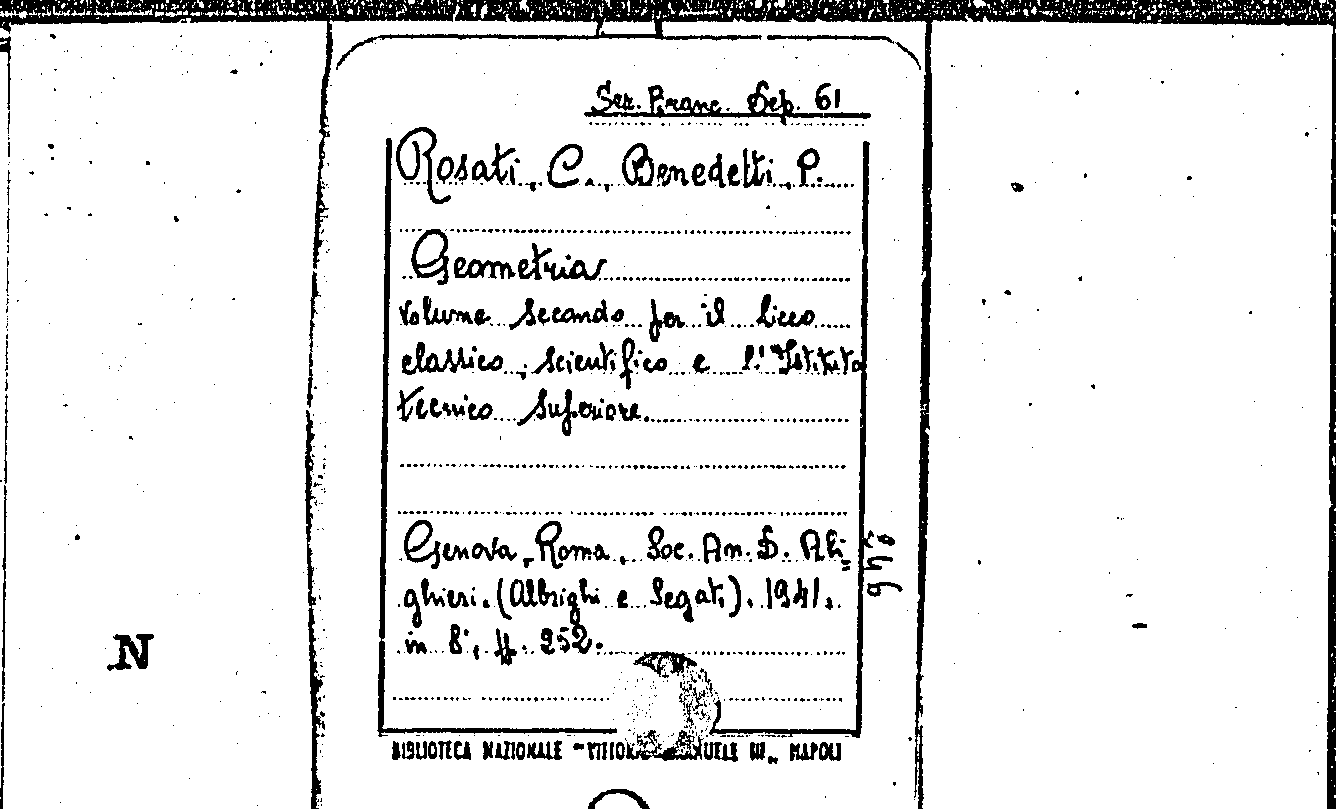 Sez. Branc. Dep. 61
Rosati, C., Benedetti, P.
Geometria
volume secondo per il liceo
classico, scientifico e l'"Istituto
tecnico superiore.
Genova, Roma, Soc. An. D. Ali"
ghieri. (Albrighi e Segati). 1941.
in 8°, pp. 252.
N
BIBLIOTECA NAZIONALE "VITTORIO EMANUELE III" NAPOLI